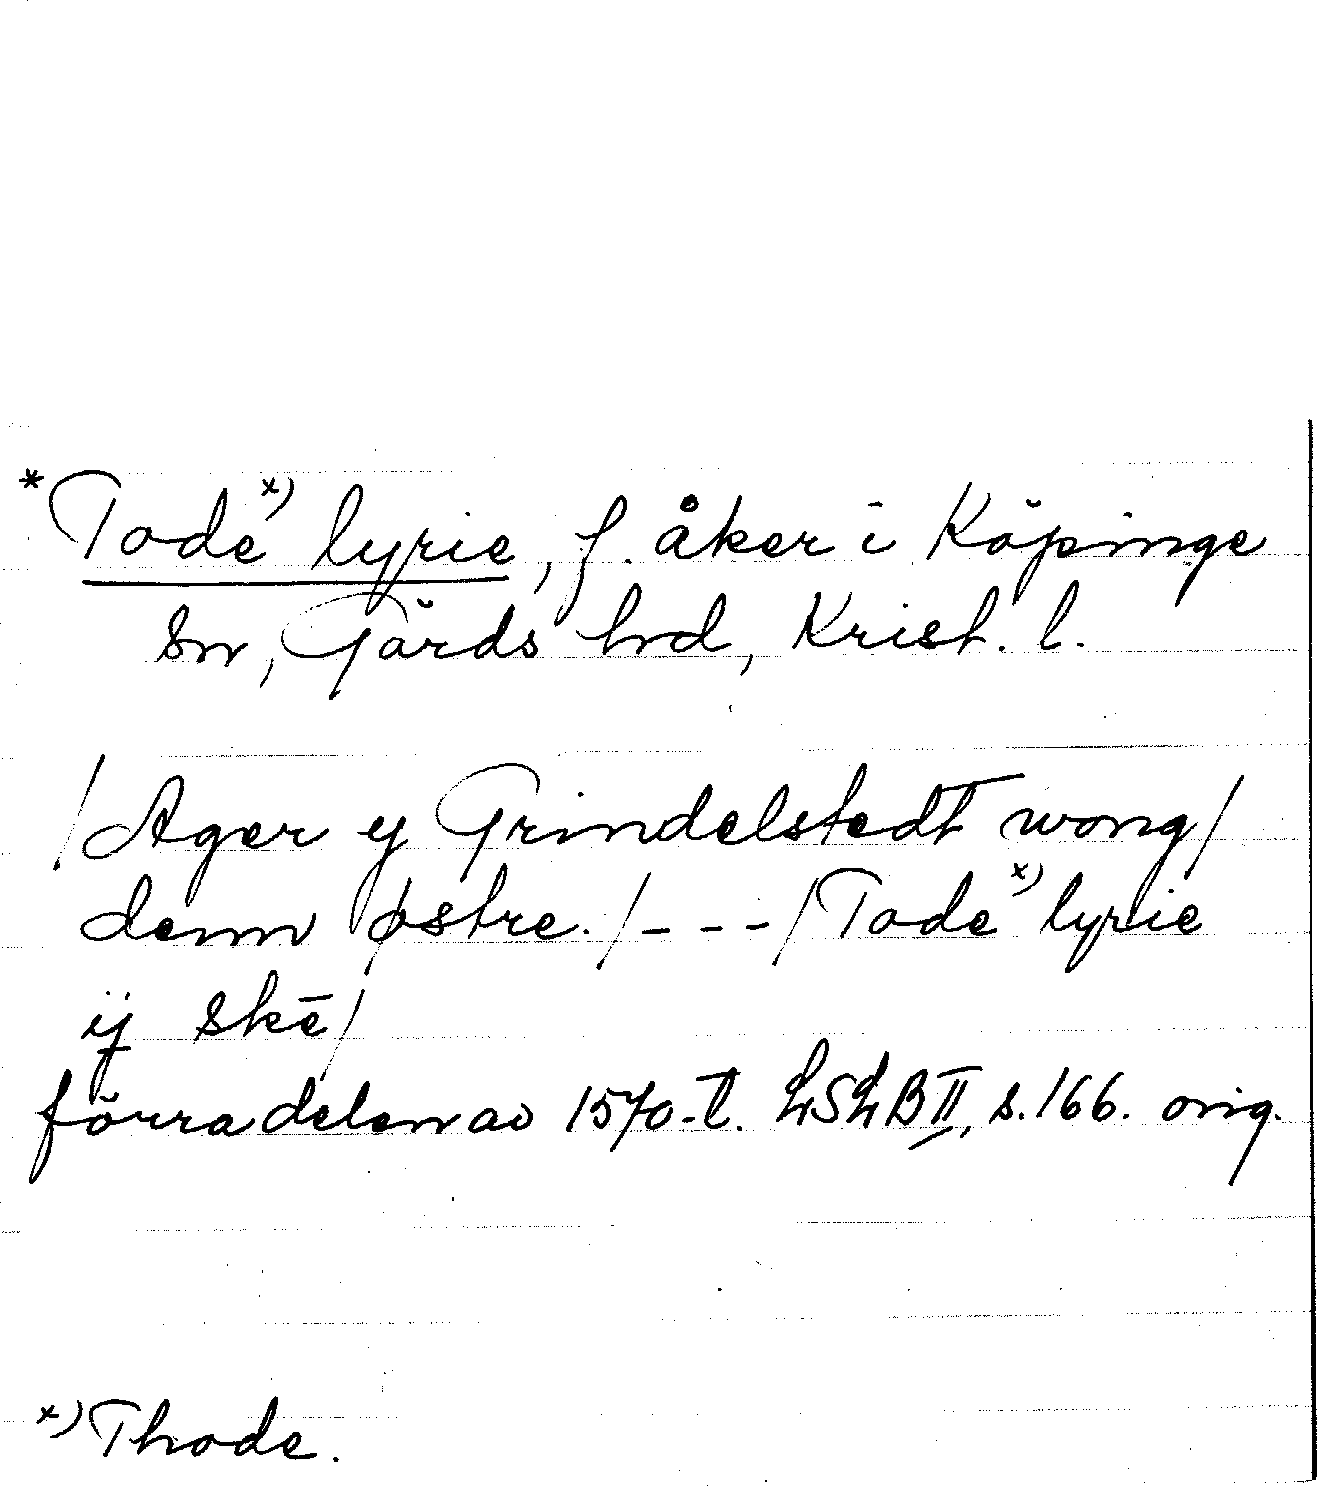 *Tode x) lyrie, f. åker i Köpinge
sn, Gärds hd, Krist. l.
/Ager y Grindelstedt wong/
denn østre./---/Tode x) lyrie
ij skē/
förra delen av 1570-t. LSLB II, s. 166. orig.
x) Thode.